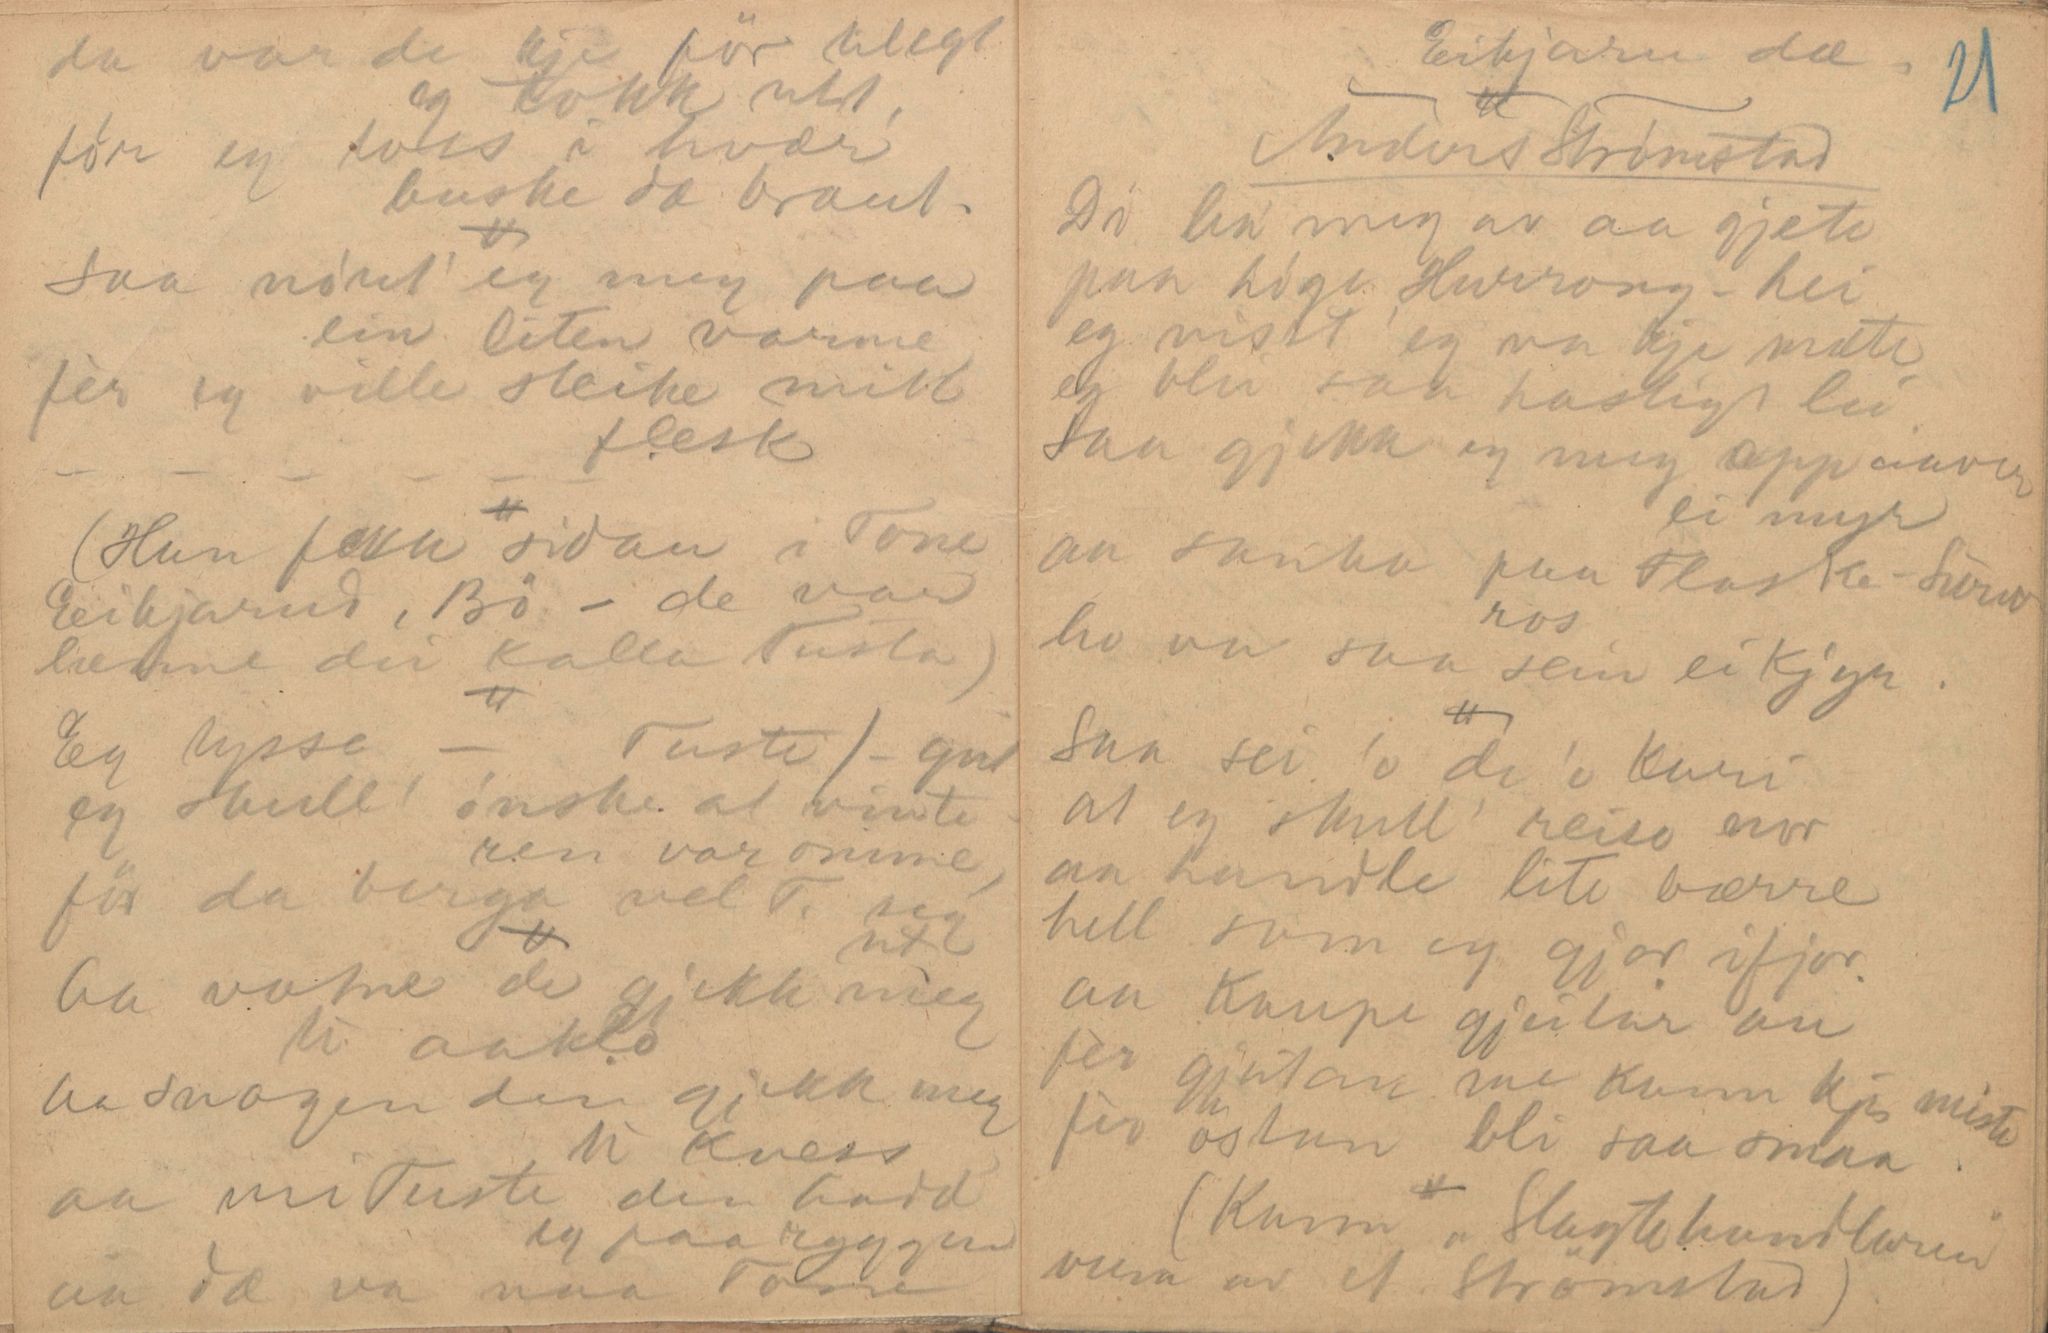 da var de kje för vlegt
eg tokk utt,
för eg tokk i hvær
buske da braut.
"
Saa nört' eg meg paa
ein liten varme
fèr eg ville steike mitt
flesk
— — — — — —
"
(Hun fekk sidan i Tone
Eikjarud, Bö – de var
henne dei kalla Tusta)
"
Eg tysse — Tuste / – gut
eg skull' ønske at vinte-
ren var omme,
för da berga vel T. seg
utt
"
Aa vatne de gjekk meg
ti aaklo
Aa snogen den gjekk meg
ti kness
aa mi Tuste den hadd
eg paa ryggen
aa dæ va naa Tone
Eikjaru dæ.
21
"
Anders Strömstad
Di ba meg av aa gjete
paa höge Hurrong-hei
eg visst' eg va kje mæte
eg blir saa hastigt lei
Saa gjekk eg meg opp aaver
ei myr
aa sanka paa Flaske-Surv
ros
ho va saa sein ei kjyr.
"
Saa sei 'o de 'o Kari
at eg skull' reise nor
aa handle lite bærre
hell som eg gjor ifjor.
aa kaupe gjeitar au
fèr gjeitan me kann kje miste
fèr östan bli saa smaa.
"
(Kann " Slagtehandlaren
vera av A. Strömstad)